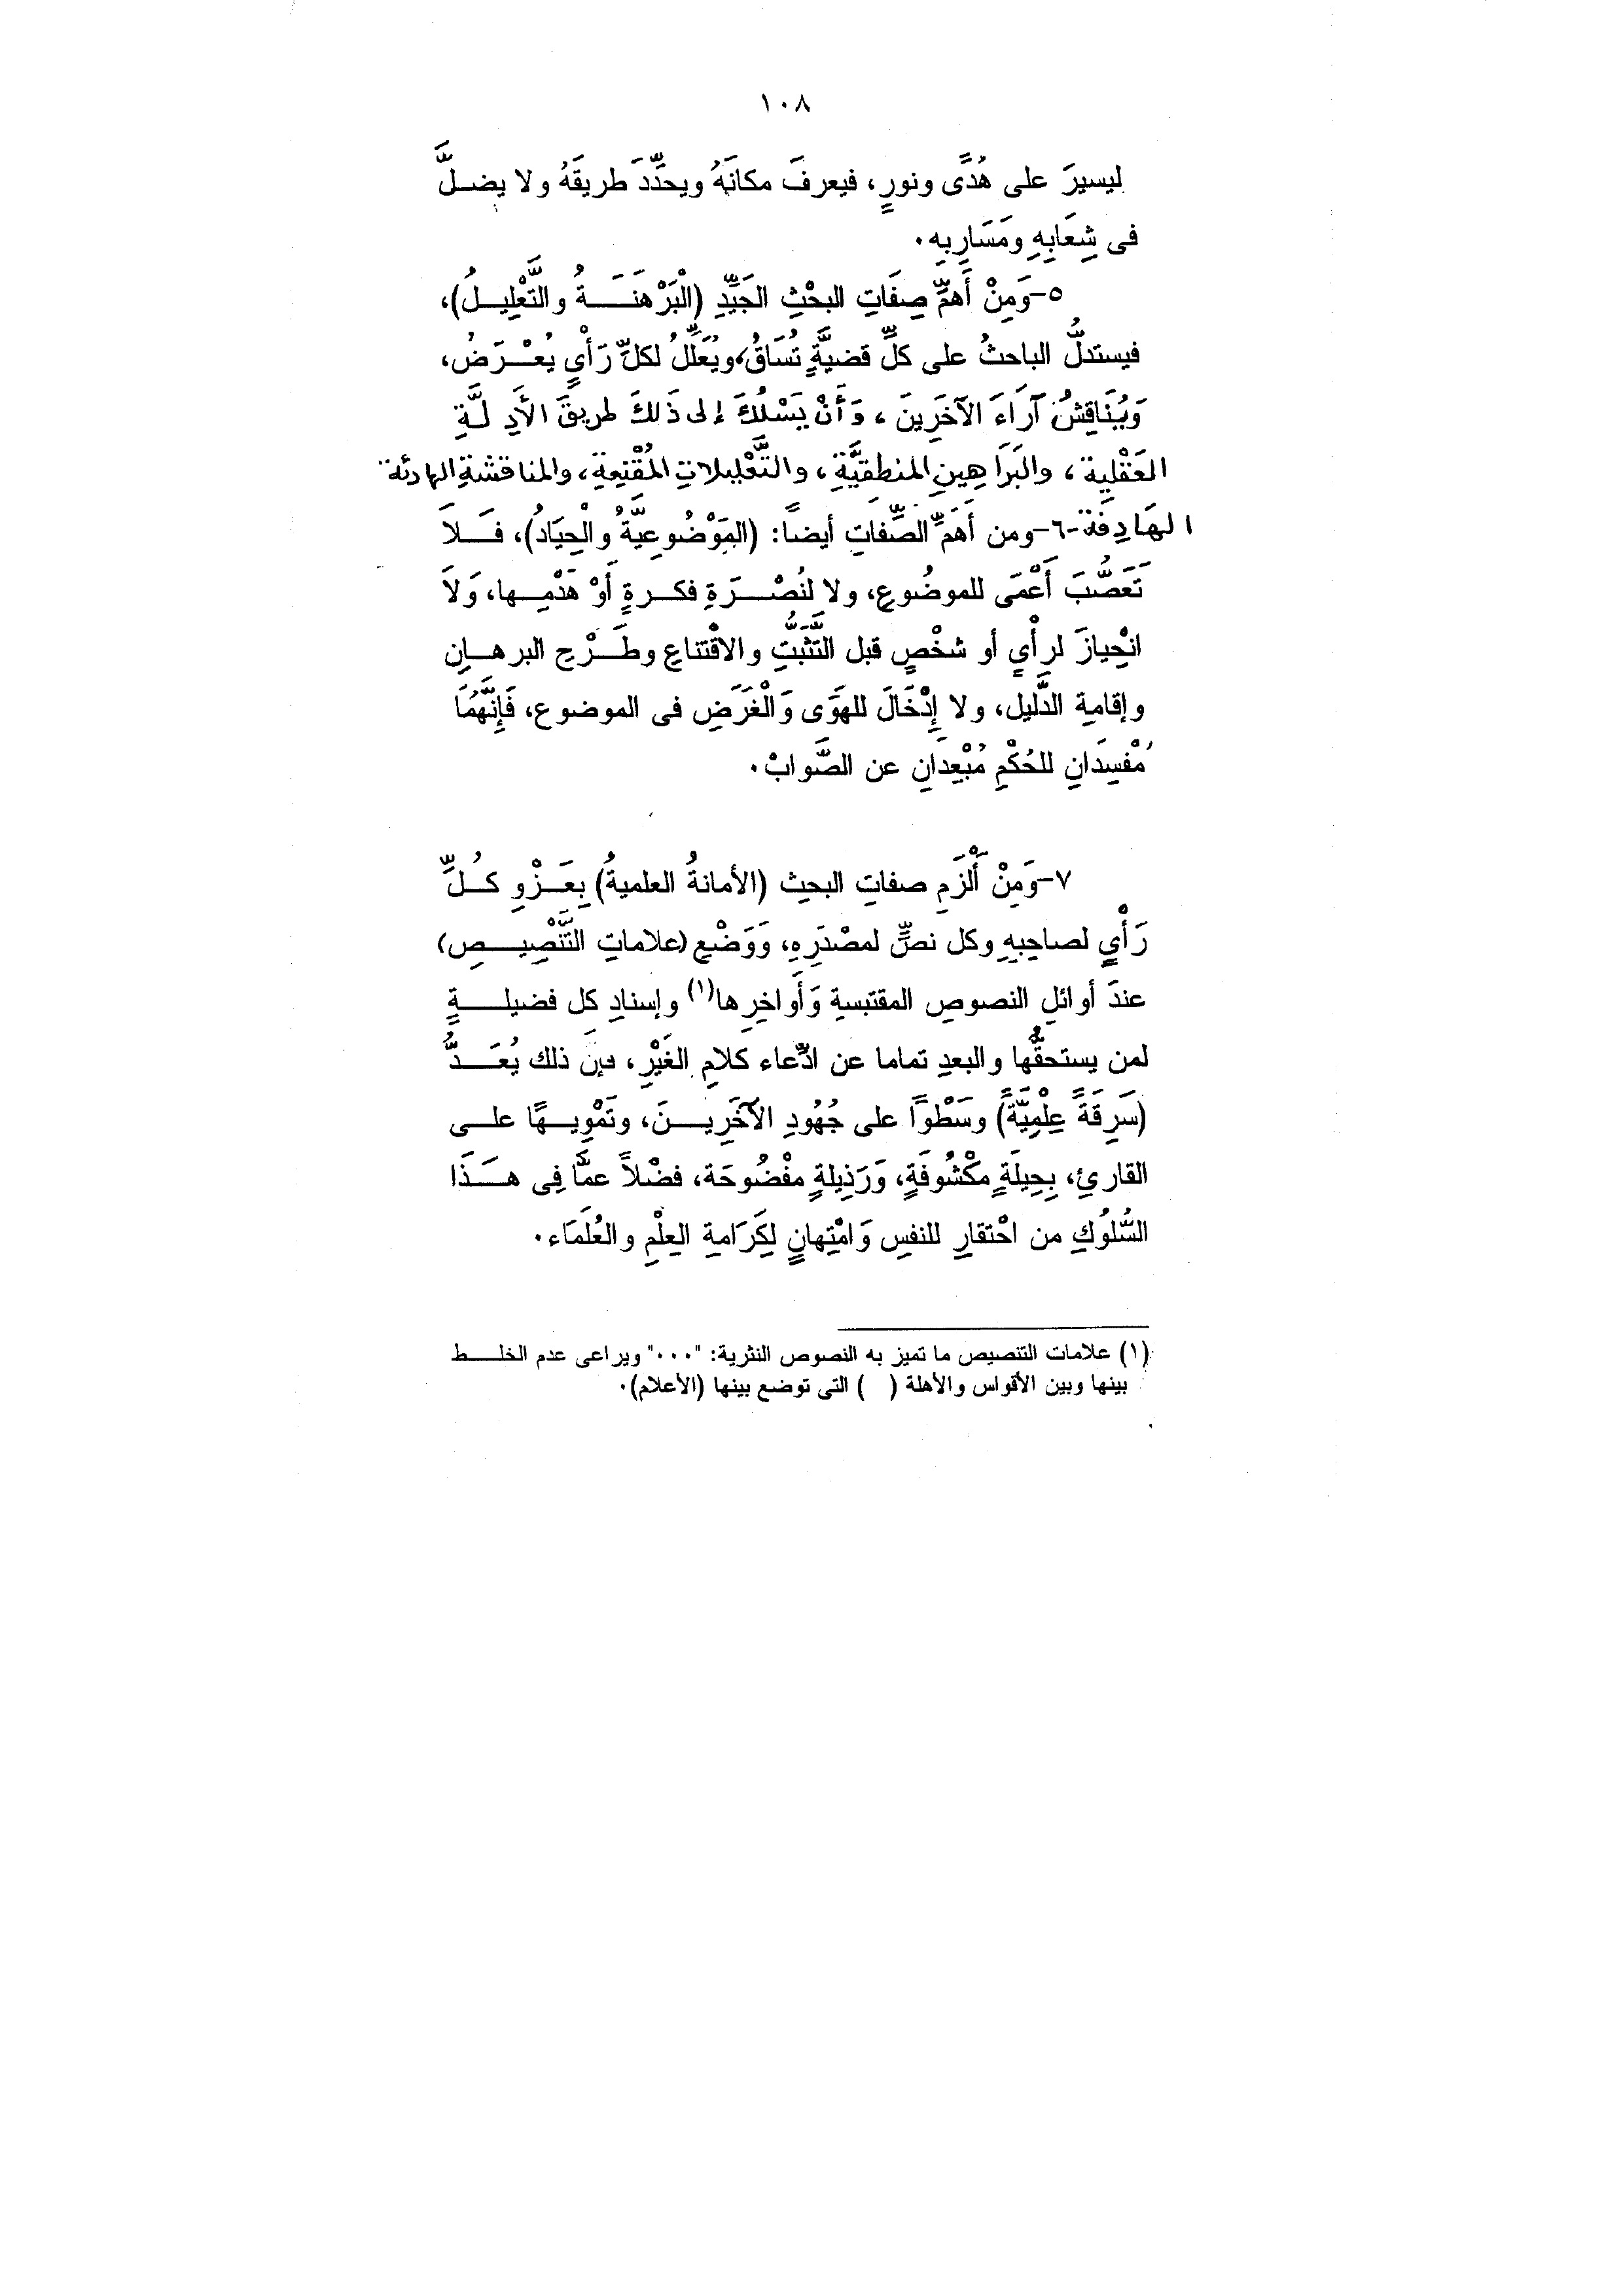 ١٠٨
ليسيرَ على هُدًى ونورٍ، فيعرفَ مكانَهُ ويحدِّدَ طريقَهُ ولا يضلَّ
فى شِعَابِهِ ومَسَارِبِهِ.
٥-وَمِنْ أَهمِّ صِفَاتِ البحْثِ الجَيِّدِ (الْبَرْهَنَةُ والتَّعْلِيلُ)،
فيستدلُّ الباحثُ على كلِّ قضيَّةٍ تُسَاقُ، ويُعَلِّلُ لكلِّ رَأْيٍ يُعْرَضُ،
وَيُنَاقِشُ آرَاءَ الآخَرِينَ، وَأَنْ يَسْلُكَ إلى ذَلكَ طريقَ الأَدِلَّةِ
العَقْلِية، والبَرَاهِينِ المنطقيَّةِ، والتَّعْليلاتِ المُقْنِعةِ، والمناقشةِ الهادئة
الهَادِفَة-٦-ومن أهَمِّ الصِّفاتِ أيضاً: (المَوْضُوعِيَّةُ والْحِيَادُ)، فَلاَ
تَعَصُّبَ أَعْمَى للموضُوعِ، ولا لنُصْرَةِ فكرةٍ أَوْ هَدْمِها، وَلاَ
انْحِيازَ لرأْيٍ أو شخْصٍ قبل التَّثَبُّتِ والاقْتناعِ وطَرْحِ البرهانِ
وإقامةِ الدَّليل، ولا إِدْخَالَ للهَوَى وَالْغَرَضِ فى الموضوع، فَإِنَّهُمَا
مُفْسِدَانِ للحُكْمِ مُبْعِدَانِ عن الصَّوابْ.
٧-وَمِنْ أَلْزَمِ صفاتِ البحثِ (الأمانةُ العلميةُ) بِعَزْوِ كُلِّ
رَأْيٍ لصاحِبِهِ وكل نصٍّ لمصْدَرِهِ، وَوَضْعِ (علاماتِ التَّنْصِيصِ)
عندَ أوائلِ النصوصِ المقتبسةِ وَأَواخِرِها(١) وإسنادِ كل فضيلةٍ
لمن يستحقُّها والبعدِ تماما عن ادِّعاء كلامِ الغَيْرِ، فإنَّ ذلك يُعَدُّ
(سَرِقَةً عِلْمِيَّةً) وسَطْوًا على جُهُودِ الآخَرِينَ، وتَمْوِيهًا على
القارئِ، بِحِيلَةٍ مكْشُوفَةٍ، وَرَذِيلةٍ مفْضُوحَة، فضْلاً عمَّا فِى هَذَا
السُّلوُكِ من احْتقارِ للنفسِ وَامْتِهانٍ لِكَرَامةِ العِلْمِ والعُلَمَاء.
(١) علامات التنصيص ما تميز به النصوص النثرية: "..." ويراعى عدم الخلط
بينها وبين الأقواس والأهلة ( ) التى توضع بينها (الأعلام).